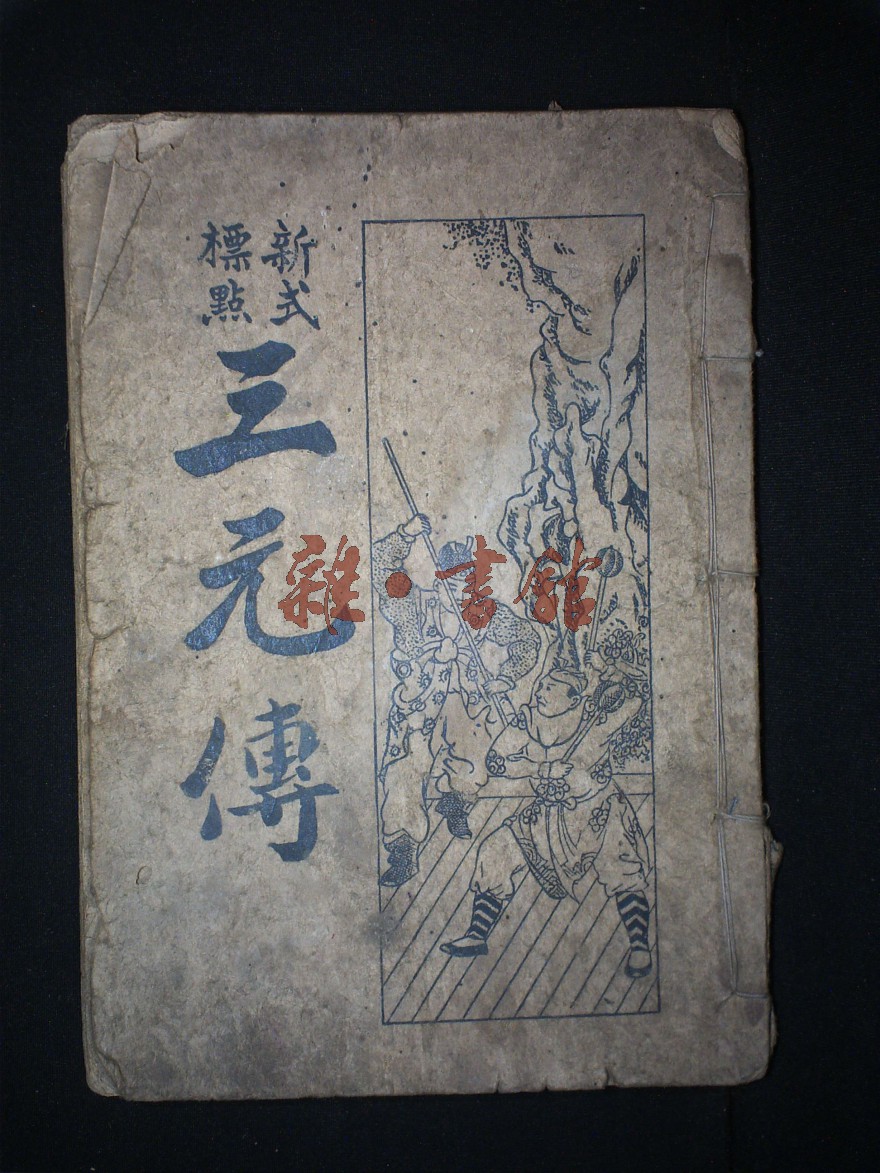 新式
標點
三元傳
雜·書館